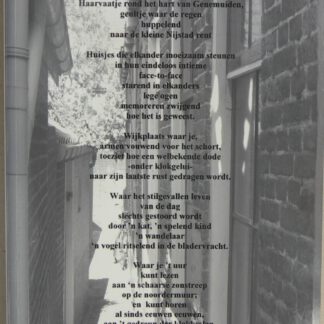 Haarvaatje rond het hart van Genemuiden,
geultje waar de regen
huppelend
naar de kleine Nijstad rent
Huisjes die elkander moeizaam steunen
in hun eindeloos intieme
face-to-face
starend in elkanders
lege ogen
memoreren zwijgend
hoe het is geweest.
Wijkplaats waar je,
armen vouwend voor het schort,
toezief hoe een welbekende dode
-onder klokgelui-
naar zijn laatste rust gedragen wordt.
Waar het stilgevallen leven
van de dag
slechts gestoord wordt
door 'n kat, 'n spelend kind
'n wandelaar
'n vogel ritselend in de bladervracht.
Waar je 't uur
kunt lezen
aan 'n schaarse zonstreep
op de noordermuur;
en kunt horen
al sinds eeuwen eeuwen,
aan 't gedreun der